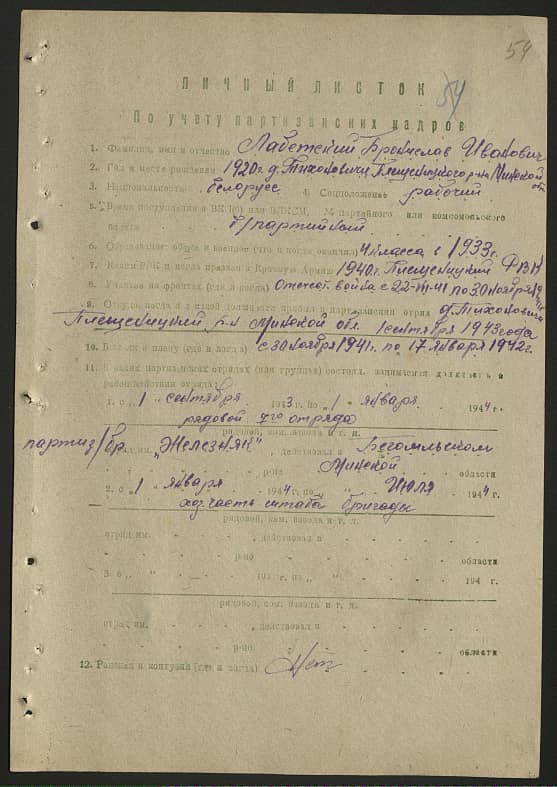 54
54
ЛИЧНЫЙ ЛИСТОК
По учету партизанских кадров
1. Фамилия, имя и отчество Лабетский Бронислав Иванович
2. Год и место рождения 1920 г. д. Тихоновичи Плещеницкого р-на Минской об.
3. Национальность белорусс 4. Соцположение рабочий
5. Время поступления в ВКП(б) или ВЛКСМ, № партийного или комсомольского
билета б/партийный
6. Образование: общее и военное (что и когда окончил) 4 класса в 1933 г.
7. Каким РВК и когда призван в Красную Армию 1940 г. Плещеницкий РВК
8. Участие на фронтах (где и когда) Отечест. война с 22-VI-41 по 30 ноября 41
9. Откуда, когда и с какой должности прибыл в партизанский отряд д. Тихоновичи
Плещеницкий р-н Минской обл. 1 сентября 1943 года
10. Был ли в плену (где и когда) с 30 ноября 1941 г. по 17 января 1942 г.
11. В каких партизанских отрядах (или группах) состоял, занимаемая должность и
район действия отряда:
1. с „ 1 „ сентября 1943 г. по „ 1 „ января 1944 г.
рядовой 7го отряда
рядовой, ком. взвода и т. п.
партиз/бр. отряд им. „Железняк“, действовал в Бегомльском
районе Минской области
2. с „ 1 „ января 1944 г. по „ „ Июля 1944 г.
хоз часть штаба бригады
рядовой, ком. взвода и т. п.
отряд им. , действовал в
районе области
3. с „ „ 194 г. по „ „ 194 г.
рядовой, ком. взвода и т. п.
отряд им. , действовал в
районе области
12. Ранения и контузии (где и когда) Нет